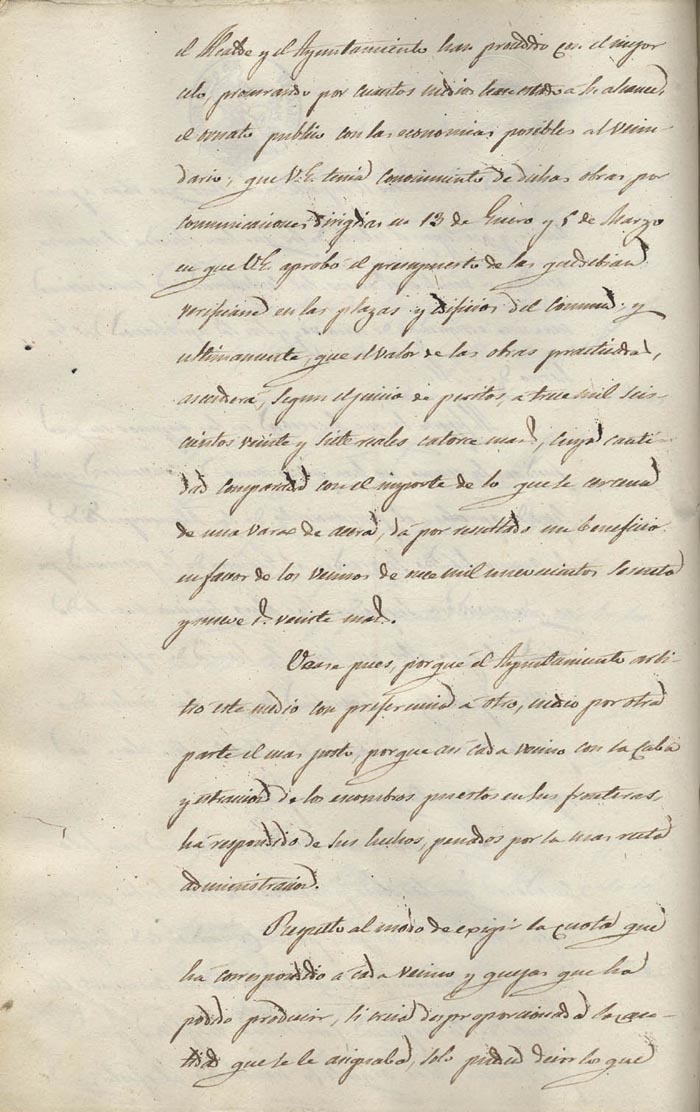 el Alcalde y el Ayuntamiento han procedido con el mejor
celo, procurando por cuantos medios han estado a su alcance,
el ornato publico con las economias posibles al vecin-
dario; que V.E. tenia conocimiento de dichas obras por
comunicaciones dirigidas en 13 de Enero y 5 de Marzo
en que V.E. aprobó el presupuesto de las que debian
verificarse en las plazas y edificios del Comun; y
ultimamente, que el valor de las obras practicadas,
ascenderá, segun el juicio de peritos, a trece mil seis-
cientos veinte y siete reales catorce mar.s, cuya canti-
dad comparada con el importe de lo que se
de una vara de acera, dá por resultado un beneficio
en favor de los vecinos de once mil novecientos sesenta
y nueve r.s veinte mar.s.
Vease pues, porqué el Ayuntamiento arbi-
tró este medio con preferencia a otro, medio por otra
parte el mas justo, porque asi cada vecino con la
y estraccion de los escombros puestos en sus fronteras,
ha respondido de sus hechos, penados por la mas recta
administracion.
Respecto al modo de exigir la cuota que
ha correspondido á cada vecino y quejas que ha
podido producir, si creia desproporcionada la can-
tidad que se le asignaba, solo puede decir lo que